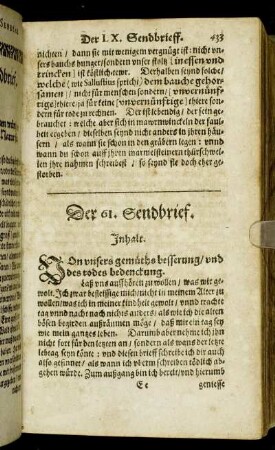 Der LX. Sendbrieff. 433
nichten/ dann sie mit wenigem vergnügt ist: nicht vn-
sers bauchs hunger/ sondern vnser stoltz (in essen vnd
trincken) ist köstlich
welche (wie Sallustius spricht) dem bauche gehor-
samen/ nicht für menschen sondern/ vnvernünf-
tige thiere: ja für keine (vnvernünftige) thiere son-
dern für todte zu rechnen. Der ist lebendig/ der sein ge-
brauchet: welche aber sich in winckeln der faul-
heit ergeben/ dieselben seynd nicht anders in ihren häu-
sern/ als wann sie schon in den gräbern legen: vnnd
wann du schon auff ihren marmelsteinern thürschwel-
len ihre nahmen schreibest/ so seynd sie doch eher ge-
storben.
Der 61. Sendbrief.
Inhalt.
Von vnsers gemüths besserung/ vnd
des todes bedenckung.
Laß vns auffhören zu wollen/ was wir ge-
wolt. Ich zwar befleissige mich/ nicht in meinem Alter zu
wollen/ was ich in meiner kindheit gewolt/ vnnd trachte
tag vnnd nacht nach nichts anders/ als wie ich die alten
bösen begirden außräumen möge/ daß mir ein tag sey
wie mein gantzes leben. Darumb aber nehme ich ihn
nicht fort für den letzten an/ sondern als wans der letzte
lebetag seyn könte: vnd diesen brieff schreibe ich dir auch
also gesinnet/ als wann ich vberm schreiben tödlich ab-
gehen würde. Zum außgang bin ich bereit/ vnd hierumb
Ee geniesse